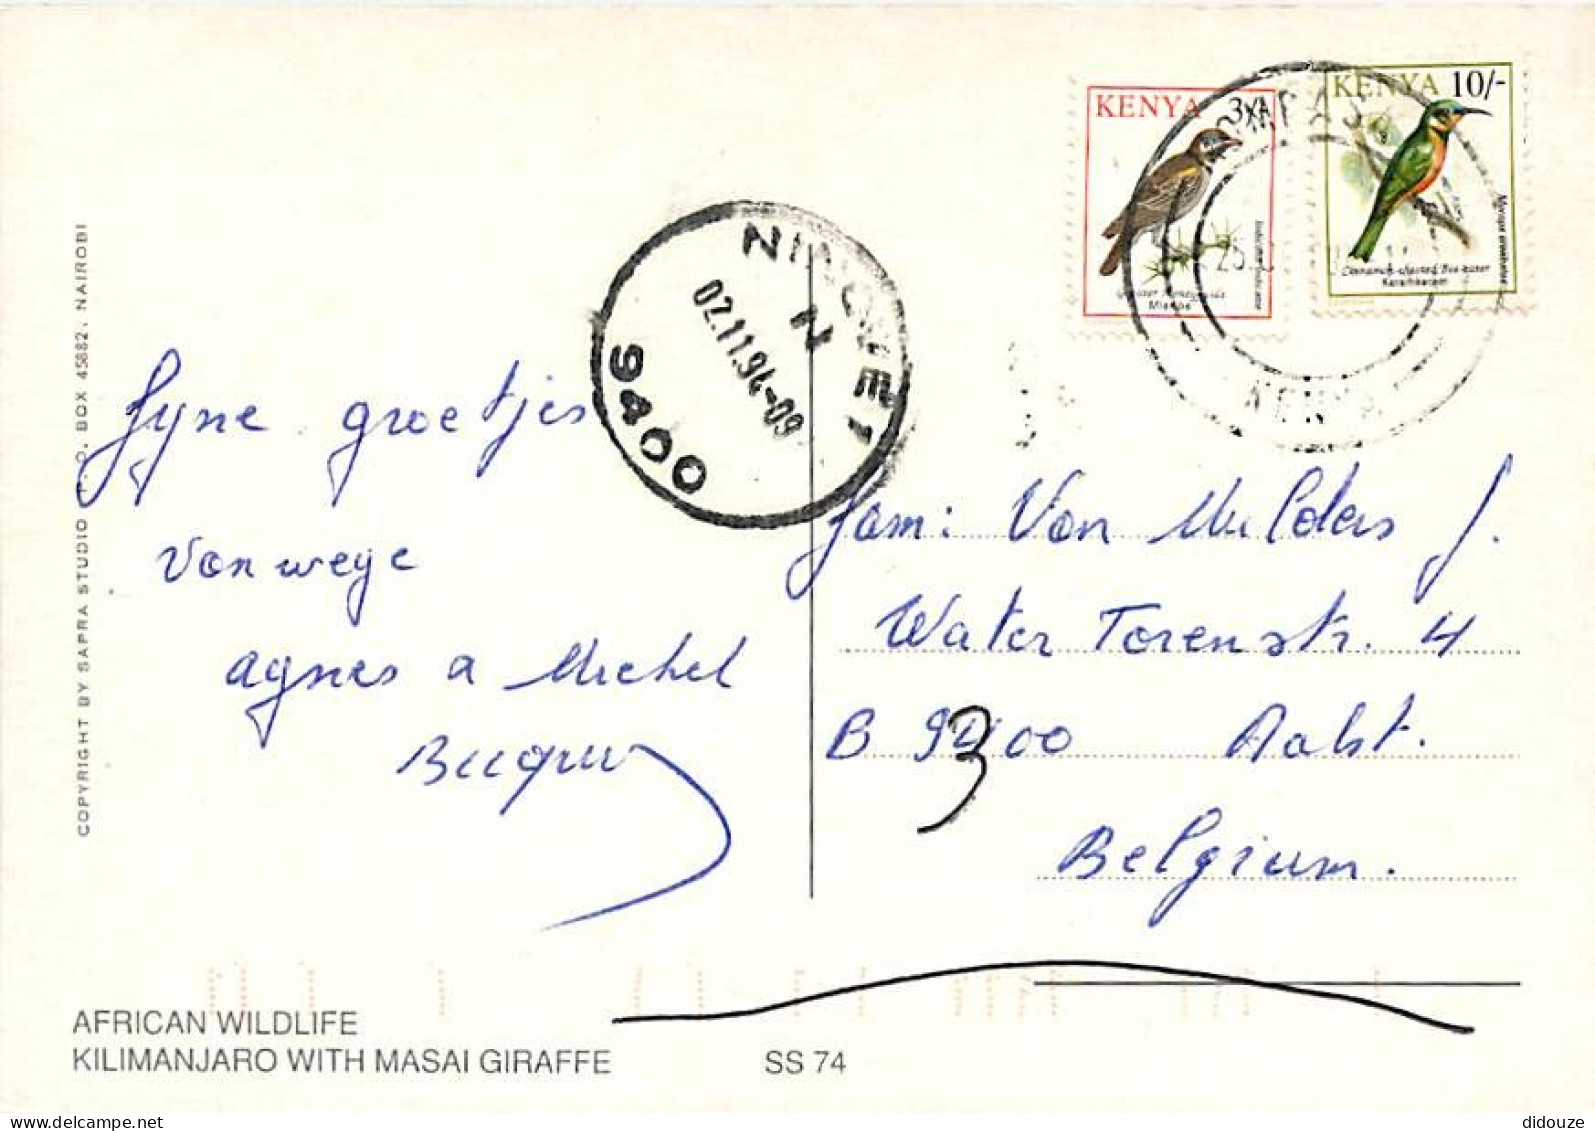 COPYRIGHT BY SAPRA STUDIO P.O. BOX 45682, NAIROBI
Fyne groetjes
van wege
Agnes a Michel
KENYA 3/-
Greater Honeyguide
KENYA 10/-
Cinnamon-chested Bee-eater
Keremkerem
KENYA
NINOVE 1
N
02.11.94-09
9400
Fam: Van Mulders J.
Water Torenstr. 4
B 9300 Aalst.
Belgium.
AFRICAN WILDLIFE
KILIMANJARO WITH MASAI GIRAFFE SS 74
https://www.delcampe.net
didouze